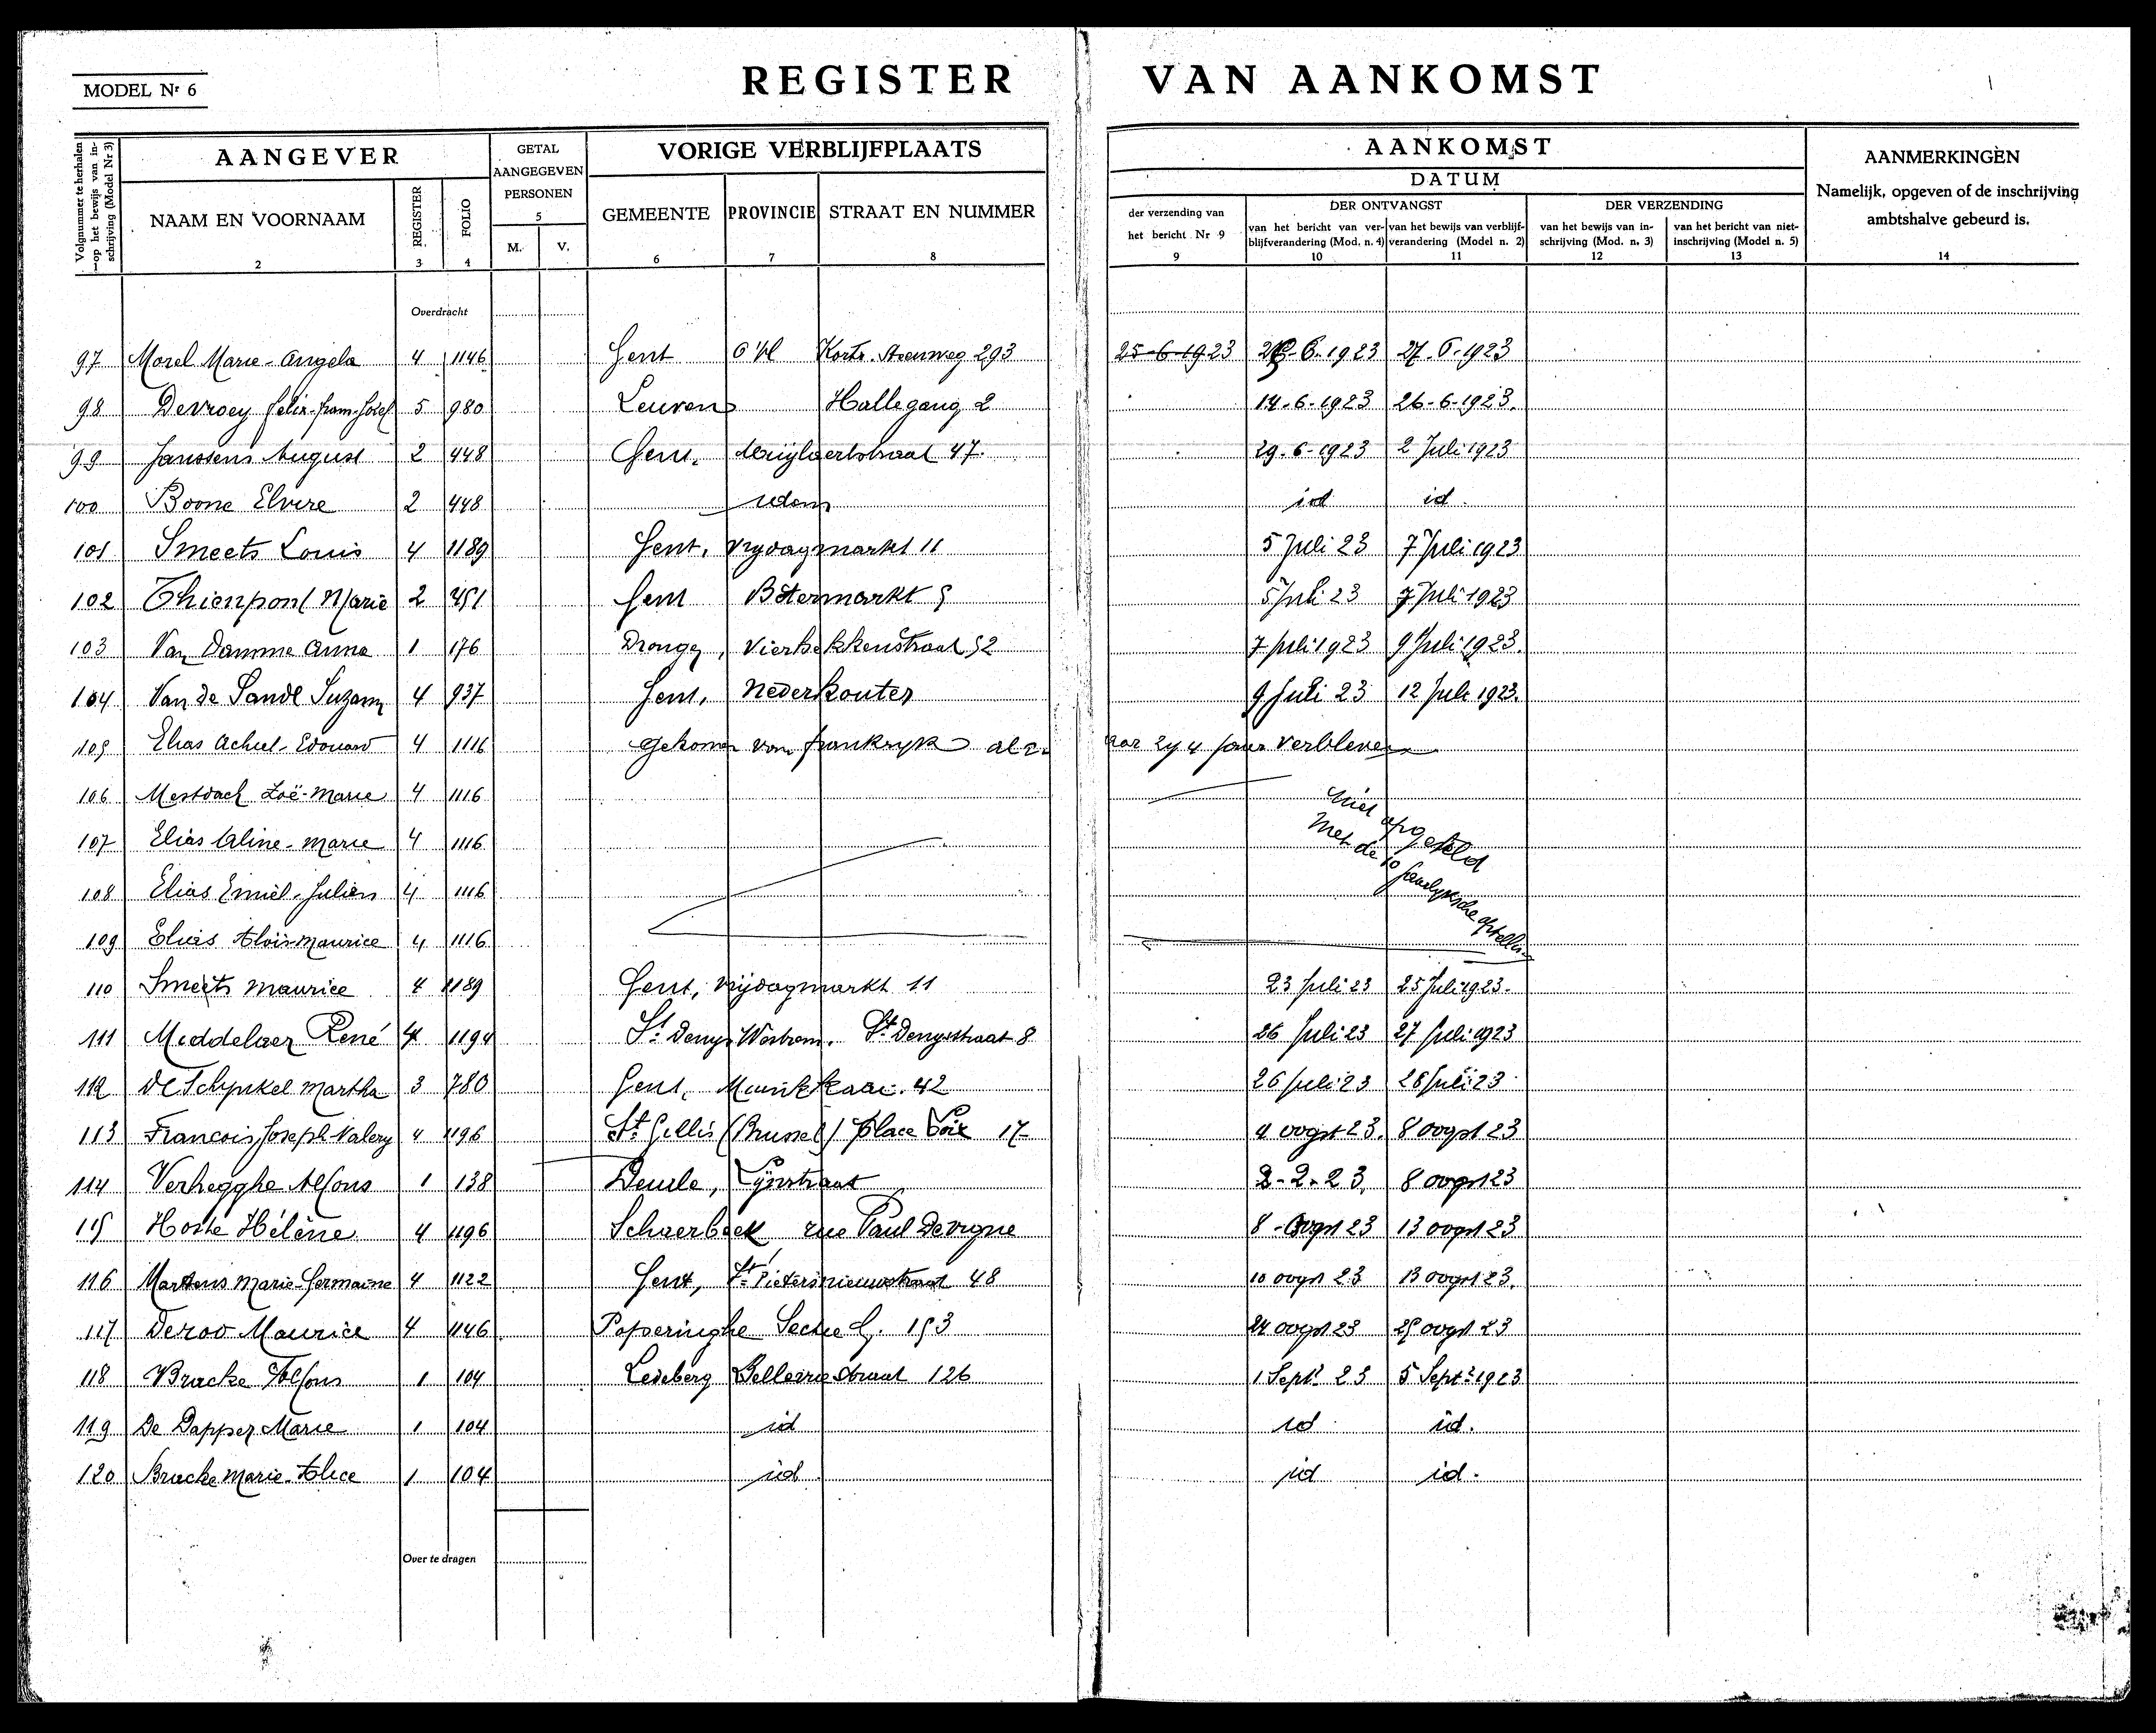 MODEL Nr 6
REGISTER VAN AANKOMST
Volgnummer te herhalen op het bewijs van inschrijving (Model Nr 3)
AANGEVER
GETAL AANGEGEVEN PERSONEN
VORIGE VERBLIJFPLAATS
AANKOMST
DATUM
AANMERKINGEN
Namelijk, opgeven of de inschrijving ambtshalve gebeurd is.
NAAM EN VOORNAAM REGISTER FOLIO M. V. GEMEENTE PROVINCIE STRAAT EN NUMMER
der verzending van het bericht Nr 9
DER ONTVANGST
van het bericht van verblijfverandering (Mod. n. 4) van het bewijs van verblijfverandering (Model n. 2)
DER VERZENDING
van het bewijs van inschrijving (Mod. n. 3) van het bericht van niet-inschrijving (Model n. 5)
2 3 4 5 6 7 8 9 10 11 12 13 14
Overdracht
97 Morel Marie-Angela 4 1146 Gent O Vl Kortr. Steenweg 293 25-6-1923 6.1923 27.6.1923
98 Devroey Felix-fram-Josef 5 980 Leuven Hallegang 2 14-6-1923 26-6-1923.
99 Janssens August 2 448 Gent, 47. 29-6-1923 2 Juli 1923
100 Boone Elvire 2 448 idem id id.
101 Smeets Louis 4 1189 Gent, Vrydagmarkt 11 5 Juli 23 7 Juli 1923
102 Thienpont Marie 2 451 Gent Botermarkt 5 5 Juli 23 7 Juli 1923
103 Van Damme Anna 1 176 Drongen, Vierhekkenstraat 52 7 juli 1923 9 Juli 1923.
104 Van de Sande Suzann 4 937 Gent, Nederkouter 9 Juli 23 12 Juli 1923.
105 Elias Achiel-Edouard 4 1116 Gekomen van frankryk alwaar zy 4 jaar verbleven
106 Mestdach Zoë-Marie 4 1116
107 Elias Aline-Marie 4 1116
Niet opgesteld
Met de
108 Elias Emiel-Julien 4 1116
109 Elias Aloïs-Maurice 4 1116
110 Smeets Maurice 4 1189 Gent, Vrijdagmarkt 11 23 juli 23 25 Juli 1923.
111 Middelaer René 4 1194 St Denys Westrem. St Denysstraat 8 26 Juli 23 27 juli 1923
112 De Schynkel Martha 3 780 Gent, Muinkkaai. 42 26 juli 23 28 juli 23
113 Francois Joseph-Valery 4 1196 St Gillis (Brussel) place Loix 17 4 oogst 23. 8 oogst 23
114 Verhegghe Alfons 1 138 Deurle, 2-2-23. 8 oogst 23
115 Hoste Hélène. 4 1196 Schaerbeek rue Paul Devigne 8 - oogst 23 13 oogst 23
116 Martens Marie-Germaine 4 1122 Gent, St Pietersnieuwstraat 48 10 oogst 23 13 oogst 23.
117 Deroo Maurice 4 1146 Poperinghe Sectie G. 153 24 oogst 23 25 oogst 23
118 Bracke Alfons 1 104 Ledeberg Bellevuestraat 126 1 Septr 23 5 Septr 1923
119 De Dapper Marie 1 104 id id id.
120 Bracke Marie-Alice 1 104 id id id.
Over te dragen